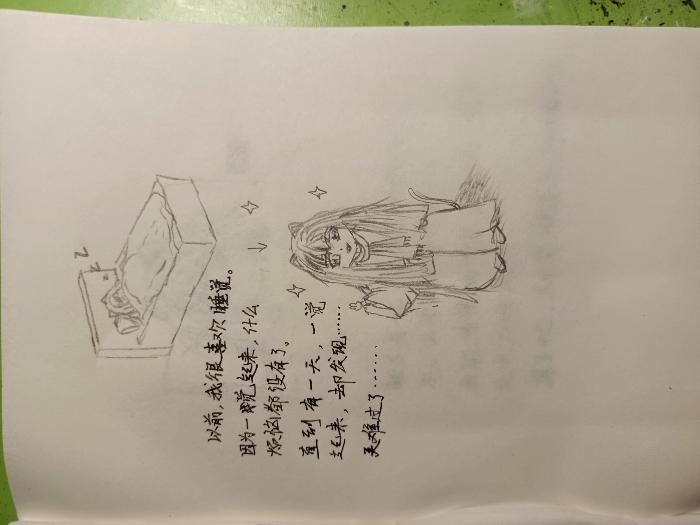 zz
以前,我很喜欢睡觉。
因为一觉起来,什么
烦恼都没有了。
直到有一天,一觉
起来,却发现……
更难过了……